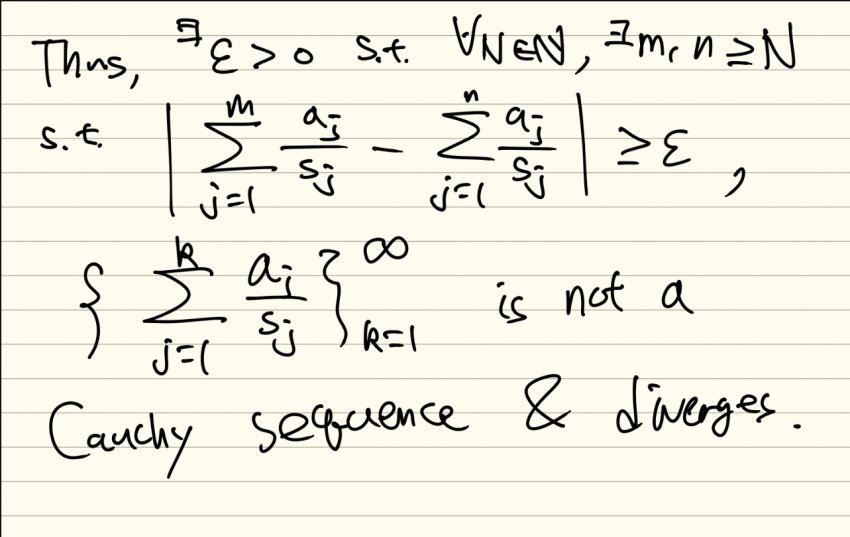 Thus, ∃ε > 0 s.t. ∀N∈ℕ, ∃m, n ≥ N
s.t. | ∑_{j=1}^{m} a_j/s_j − ∑_{j=1}^{n} a_j/s_j | ≥ ε ,
{ ∑_{j=1}^{k} a_j/s_j }_{k=1}^{∞} is not a
Cauchy sequence & diverges.